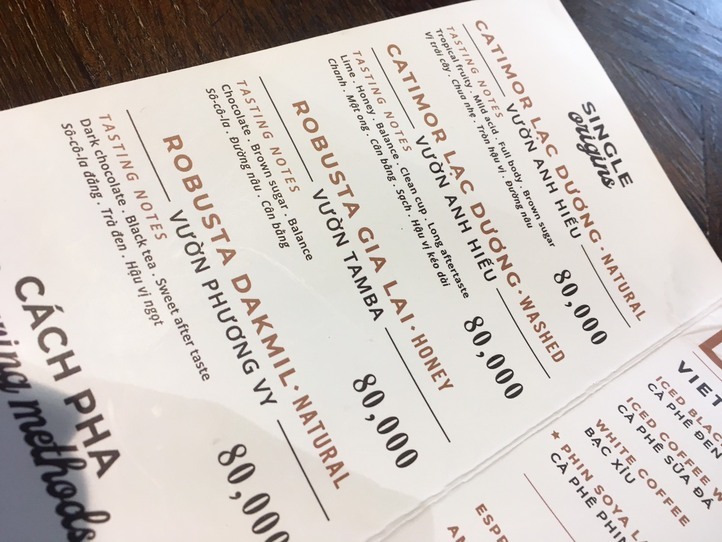 SINGLE
origins
CATIMOR LẠC DƯƠNG · NATURAL
VƯỜN ANH HIẾU
TASTING NOTES
Tropical fruity . Mild acid . Full body . Brown sugar
Vị trái cây . Chua nhẹ . Tròn hậu vị . Đường nâu
80,000
CATIMOR LẠC DƯƠNG · WASHED
VƯỜN ANH HIẾU
TASTING NOTES
Lime . Honey . Balance . Clean cup . Long aftertaste
Chanh . Mật ong . Cân bằng . Sạch . Hậu vị kéo dài
80,000
ROBUSTA GIA LAI · HONEY
VƯỜN TAMBA
TASTING NOTES
Chocolate . Brown sugar . Balance
Sô-cô-la . Đường nâu . Cân bằng
80,000
ROBUSTA DAKMIL · NATURAL
VƯỜN PHƯƠNG VY
TASTING NOTES
Dark chocolate . Black tea . Sweet after taste
Sô-cô-la đắng . Trà đen . Hậu vị ngọt
80,000
CÁCH PHA
methods
VIET
ICED BLAC
CÀ PHÊ ĐEN
ICED COFFEE W
CÀ PHÊ SỮA ĐÁ
WHITE COFFEE
BẠC XỈU
★ PHIN SOYA LA
CÀ PHÊ PHIN
ESPR